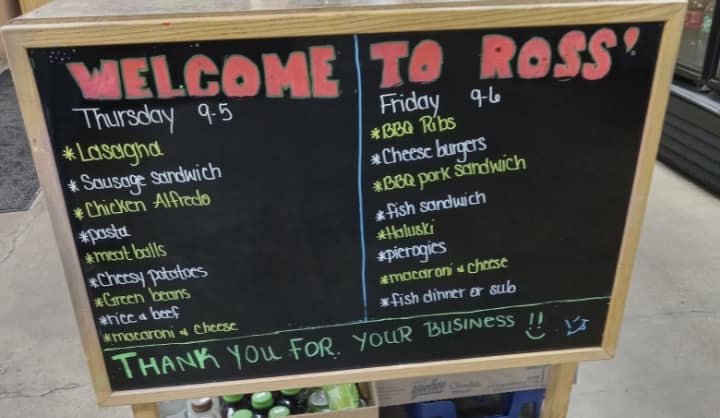 WELCOME TO ROSS'
Thursday 9-5
*Lasagna
*Sausage sandwich
*Chicken Alfredo
*pasta
*meat balls
*Cheesy potatoes
*Green beans
*rice & beef
*macaroni & cheese
Friday 9-6
*BBQ Ribs
*Cheese burgers
*BBQ pork sandwich
*fish sandwich
*Haluski
*pierogies
*macaroni & cheese
*fish dinner or sub
THANK YOU FOR. YOUR BUSINESS !!
yoohoo